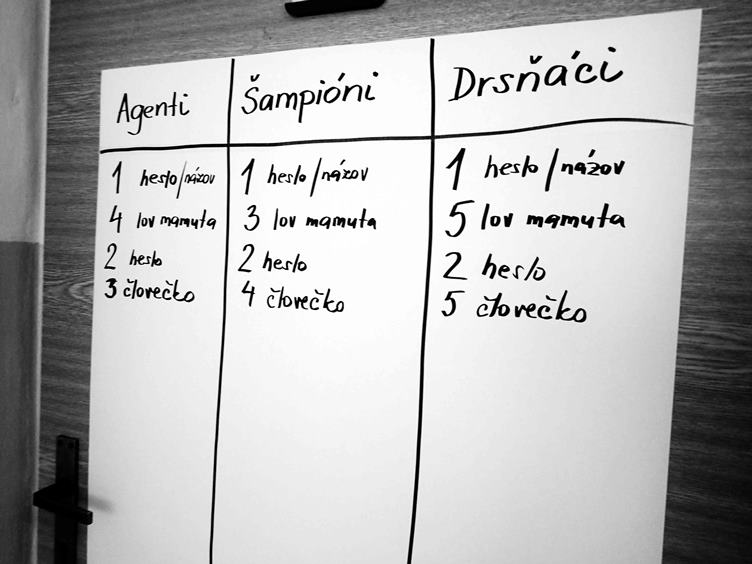 Agenti
1 heslo/názov
4 lov mamuta
2 heslo
3 človečko
Šampióni
1 heslo/názov
3 lov mamuta
2 heslo
4 človečko
Drsňáci
1 heslo/názov
5 lov mamuta
2 heslo
5 človečko